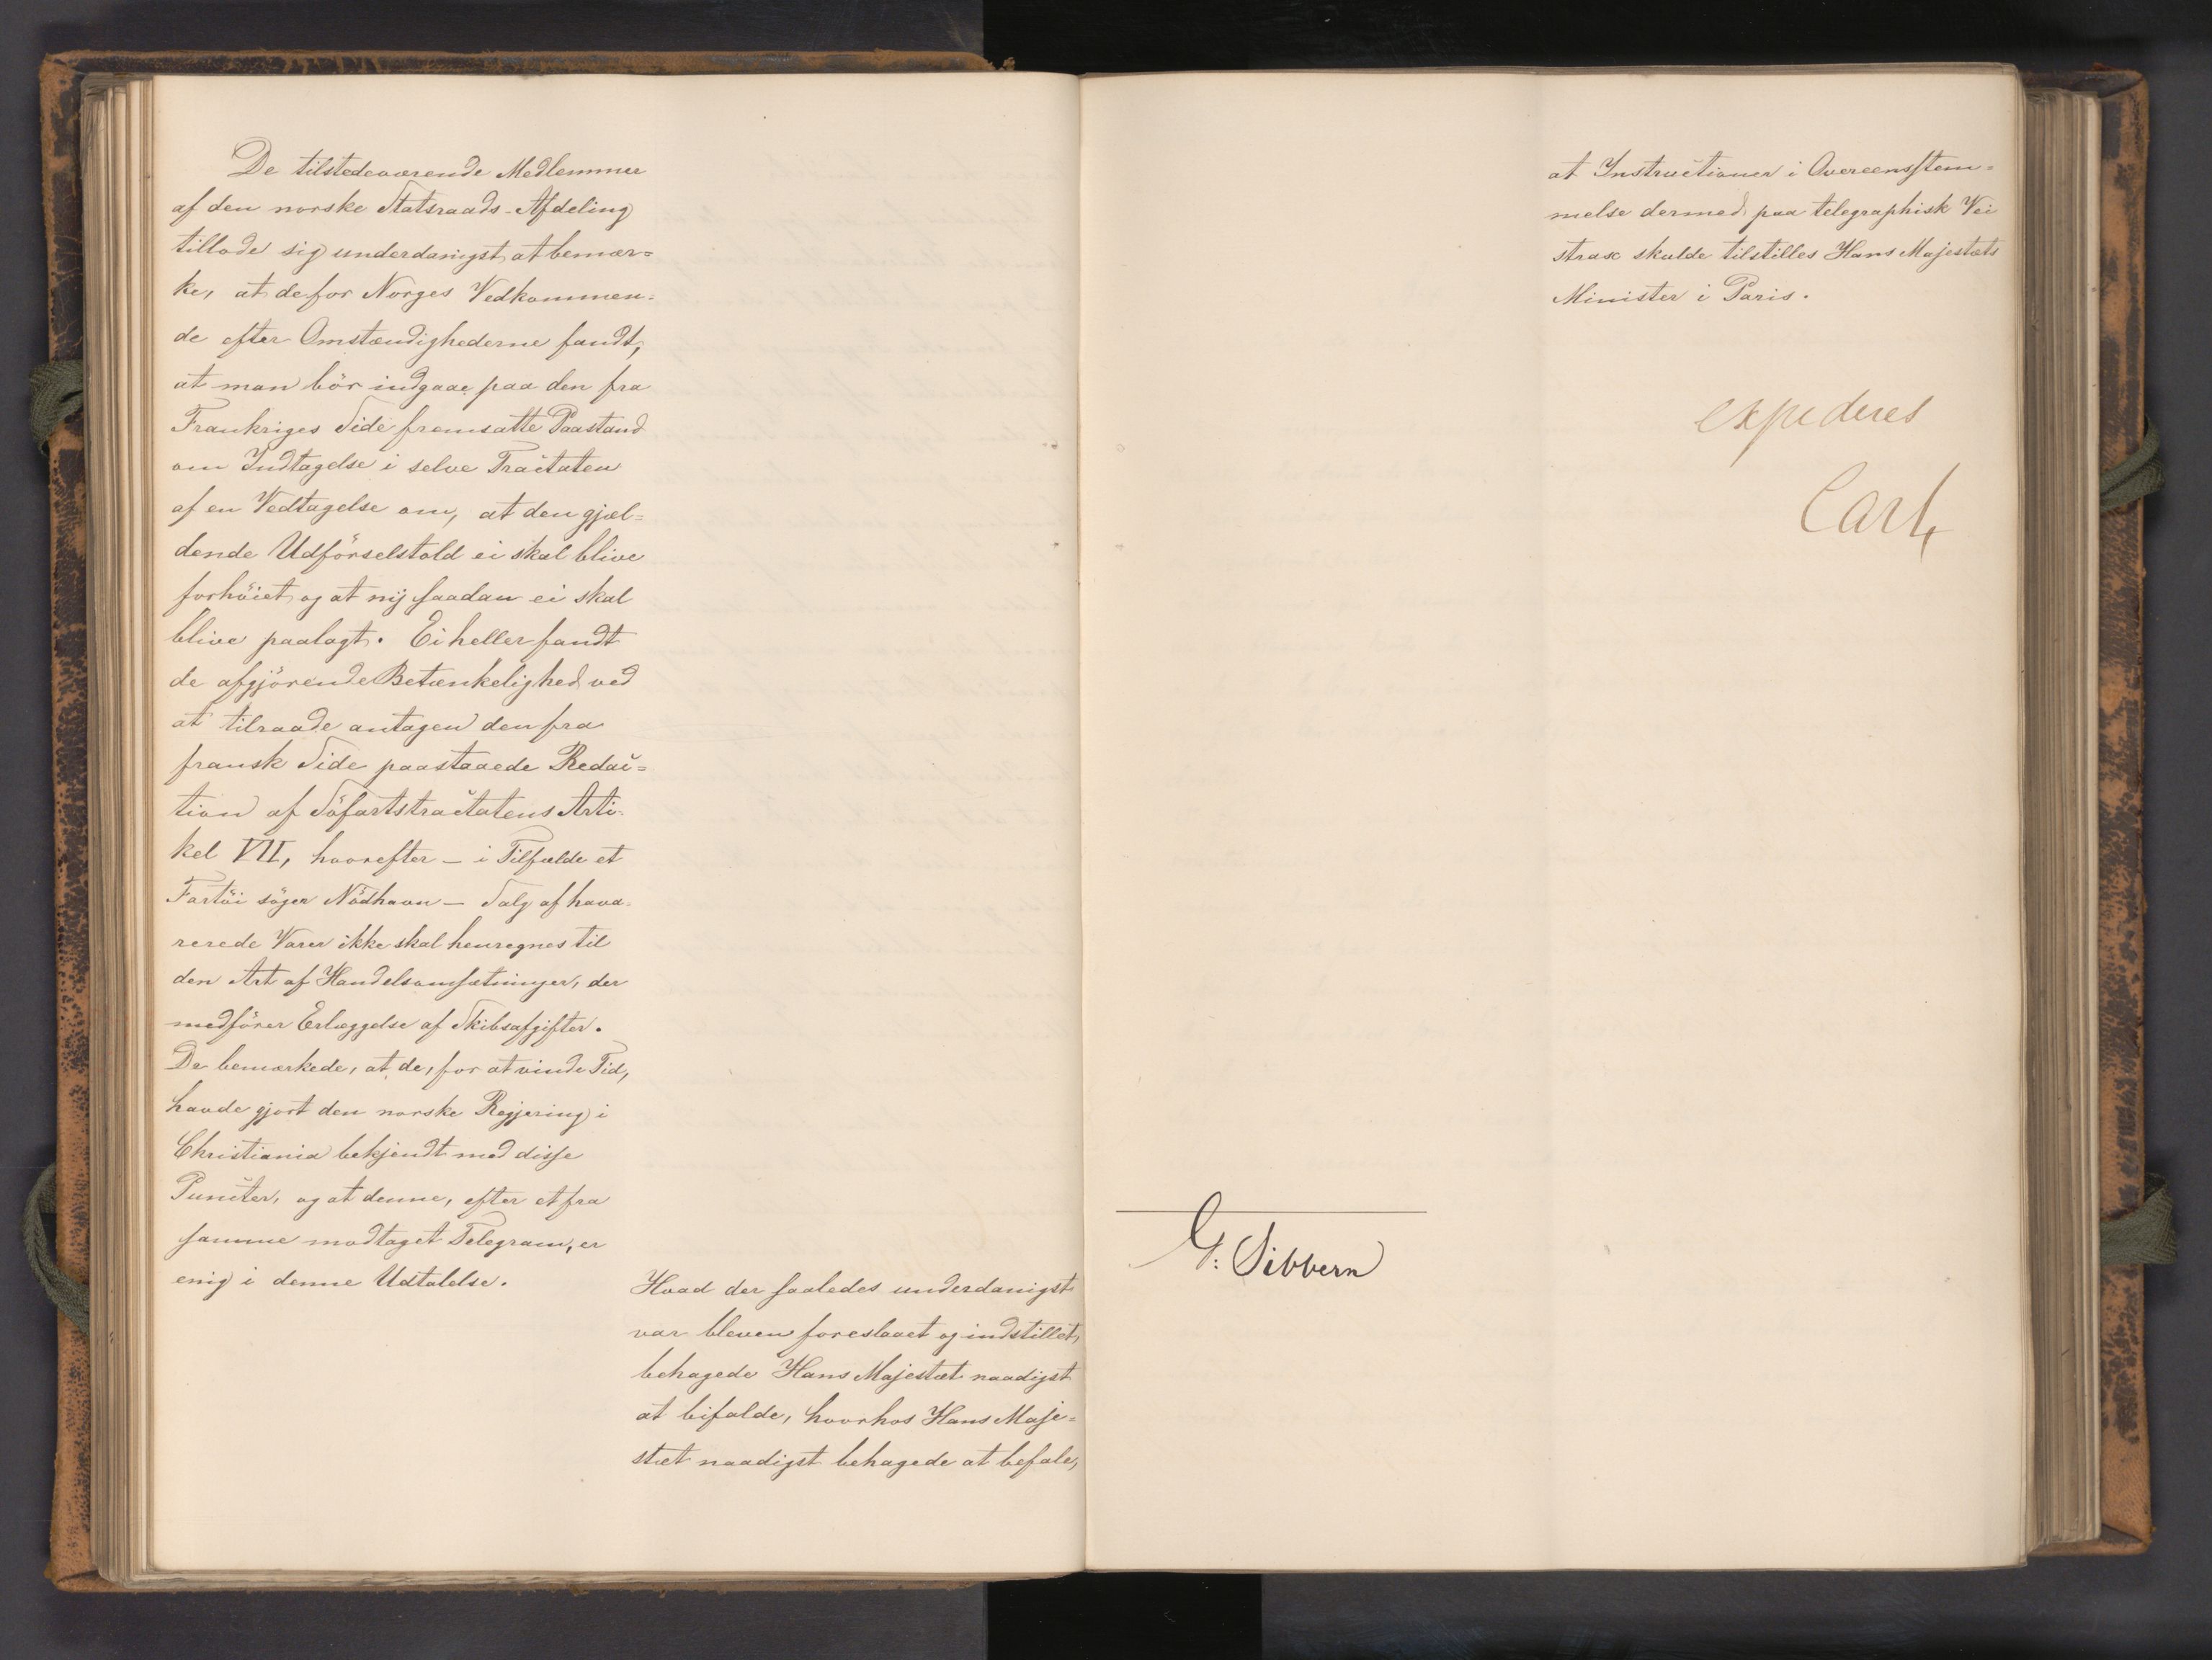 De tilstedeværende Medlemmer
af den norske Statsraads-Afdeling
tillode sig underdanigst at bemær=
ke, at de for Norges Vedkommen=
de efter Omstændighederne fandt,
at man bör indgaae paa den fra
Frankriges Side fremsatte Paastand
om Indtagelse i selve Tractaten
af en Vedtagelse om, at den gjæl=
dende Udförselstold ei skal blive
forhöiet og at ny saadan ei skal
blive paalagt. Ei heller fandt
de afgjörende Betænkelighed ved
at tilraade antagen den fra
fransk Side paastaaede Redac=
tion af Söfartstractatens Arti-
kel VII, hvorefter – i Tilfælde et
Fartöi söger Nödhavn – Salg af hava-
rerede Varer ikke skal henregnes til
den Art af Handelsomsætninger, der
medförer Erlæggelse af Skibsafgifter.
De bemærkede, at de, for at vinde Tid,
havde gjort den norske Regjering i
Christiania bekjendt med disse
Puncter, og at denne, efter et fra
samme modtaget Telegram, er
enig i denne Udtalelse.
Hvad der saaledes underdanigst
var bleven foreslaaet og indstillet,
behagede Hans Majestæt naadigst
at bifalde, hvorhos Hans Maje=
stæt naadigst behagede at befale,
at Instructioner i Overeensstem=
melse dermed paa telegraphisk Vei
strax skulde tilstilles Hans Majestæts
Minister i Paris.
expederes
Carl
G: Sibbern